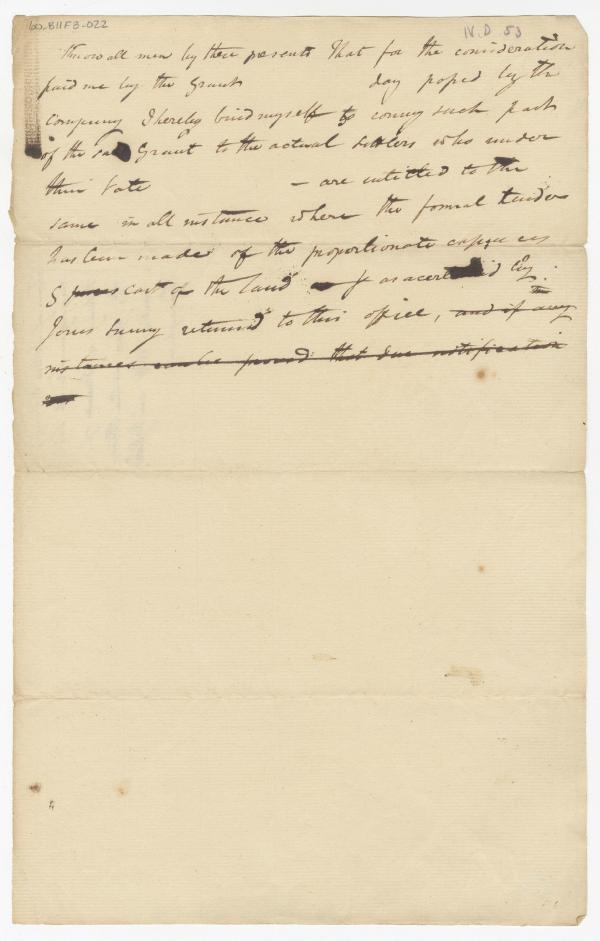 60-B11F3-022
IV. D 53
Know all men by these presents That for the consideration
paid me by the Grants day by the
company I hereby bind myself to such part
of the Grant to the actual settlers who under
their Vote — are intitled to the
same in all instance where the formal tender
has been made of the proportionate
cost of the land as by
Jones returned to this office, and if any
instances can be proved that due notification